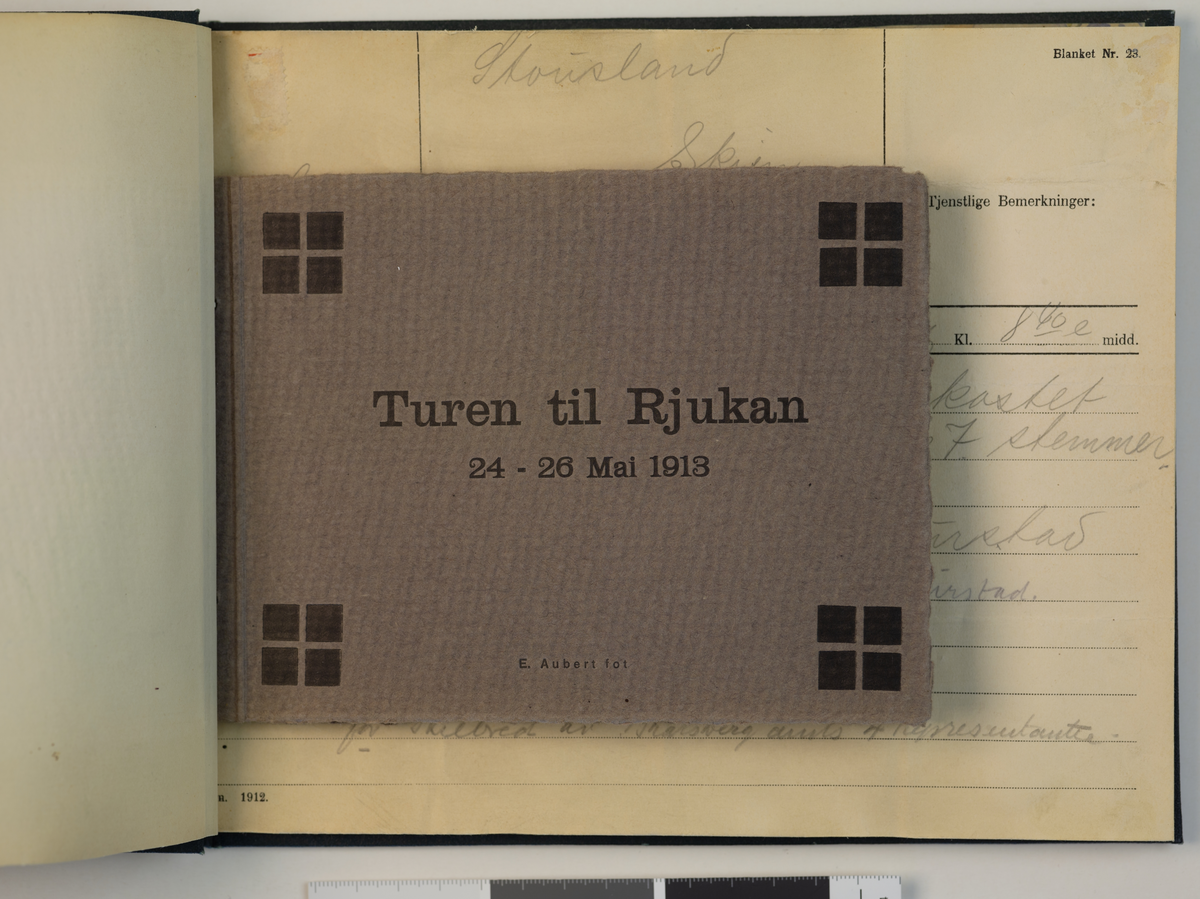 Stousland
Blanket Nr. 23.
Tjenstlige Bemerkninger:
Kl. 8 40 e midd.
kastet
7 stemmer
Turen til Rjukan
24 - 26 Mai 1913
E. Aubert fot
for av Bratsberg amts representanter
1912.